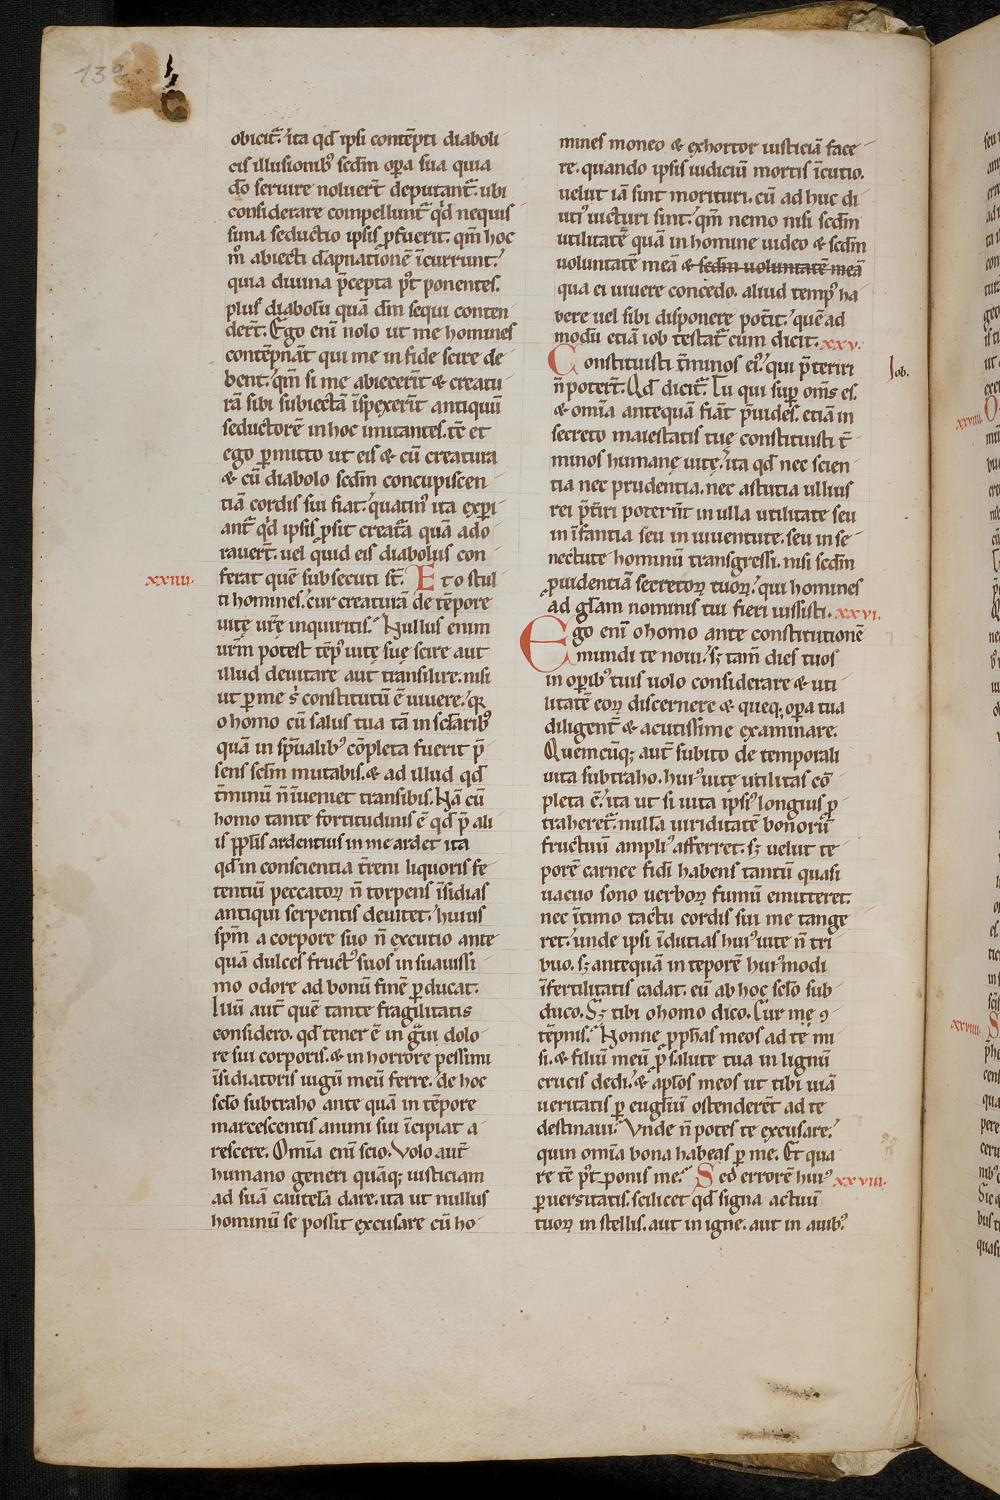 139
obicit᷑. ita qd̄ ipsi contēpti diaboli
cis illusionibꝰ scdm op̄a sua quia
dō seruire noluer̄t deputant᷑. ubi
considerare compellunt᷑ qd̄ nequis
sima seductio ipsis ꝓfuerit. qm̄ hoc
m̄ abiecti dāpnationē īcurrunt.
quia diuina p̄cepta p̄t ponentes.
plus diabolū quā dm̄ sequi conten
der̄t. Ego eni nolo ut me homines
contēpnāt qui me in fide scire de
bent. qm̄ si me abiecer̄it & creatu
rā sibi subiectā īspexerīt antiquū
seductorē in hoc imitantes. tē et
ego ꝑmitto ut eis & cū creatura
& cū diabolo scdm concupiscen
tiā cordis sui fiat. quatinꝰ ita expi
ant᷑ qd̄ ipsis ꝓsit creata quā ado
rauer̄t. uel quid eis diabolus con
ferat quē subsecuti st̄. Et o stul
xxiiii.
ti homines. cur creaturā de tēpore
uitę ur̄ę inquiritis. Nullus enim
ur̄m potest tēpꝰ uitę suę scire aut
illud deuitare aut transilire. nisi
ut ꝑ me s̄ constitutū ē uiuere. qꝛ
o homo cū salus tua tā in sclāribꝰ
quā in spūalibꝰ cōpleta fuerit p̄
sens sclm mutabis. & ad illud qd̄
t̄minū n̄ īueniet transibis. Nā cū
homo tante fortitudinis ē qd̄ p̄ ali
is pplis ardentius in me ardet ita
qd̄ in conscientia t̄reni liquoris fe
tentiū peccatoꝝ n̄ torpens īsidias
antiqui serpentis deuitet. huius
spm̄ a corpore suo n̄ excutio ante
quā dulces fructꝰ suos in suauissi
mo odore ad bonū finē ꝑducat.
Illū aut̄ quē tante fragilitatis
considero. qd̄ tener ē in g̃ui dolo
re sui corporis. & in horrore pessimi
īsidiatoris iugū meū ferre. de hoc
sclo subtraho ante quā in tēpore
marcescentis animi sui īcipiat a
rescere. Omīa eni scio. Volo aut̄
humano generi quāqꝫ iusticiam
ad suā cautelā dare. ita ut nullus
hominū se possit excusare cū ho
mines moneo & exhortor iusticiā face
re. quando ipsis iudiciū mortis īcutio.
uelut iā sint morituri. cū ad huc di
utiꝰ uicturi sint. qm̄ nemo nisi scdm
utilitatē quā in homine uideo & scdm
uoluntatē meā & scdm uoluntatē meā
qua ei uiuere concedo. aliud tempꝰ ha
bere uel sibi disponere pot̄it. quē ad
modū etiā iob testat᷑ cum dicit. xxv.
Constituisti t̄minos eiꝰ. qui p̄teriri
Job.
n̄ poter̄t. Qd̄ dicit᷑. Tu qui suꝑ om̄s es.
& omīa antequā fiāt p̄uides. etiā in
secreto maiestatis tuę constituisti t̄
minos humanę uitę. ita qd̄ nec scien
tia nec prudentia. nec astutia ullius
rei p̄t̄iri poterūt in ulla utilitate seu
in īfantia seu in iuuentute. seu in se
nectute hominū transgressi. nisi scdm
ꝓuidentiā secretoꝝ tuoꝝ. qui homines
ad gl̄am nominis tui fieri iussisti. xxvi.
Ego eni o homo ante constitutionē
mundi te noui. sꝫ tam̄ dies tuos
in op̄ibꝰ tuis uolo considerare & uti
litatē eoꝝ discernere & queqꝫ op̄a tua
diligent̄ & acutissime examinare.
Quemcūqꝫ aut̄ subito de temporali
uita subtraho. huiꝰ uitę utilitas cō
pleta ē. ita ut si uita ipsiꝰ longius ꝓ
traheret᷑. nullā uiriditatē bonorū
fructuū ampliꝰ afferret. sꝫ uelut te
porē carnee fidi habens tantū quasi
uacuo sono uerboꝝ fumū emitteret.
nec ītimo tactu cordis sui me tange
ret. unde ipsi īdutias huiꝰ uite n̄ tri
buo. sꝫ antequā in teporē huiꝰmodi
īfertilitatis cadat. eū ab hoc sclo sub
duco. Sꝫ tibi o homo dico. Cur me ꝯ
tēpnis. Nonne ꝓphas meos ad te mi
si. & filiū meū ꝓ salute tua in lignū
crucis dedi. & aplos meos ut tibi uiā
ueritatis ꝑ euglīū ostenderēt ad te
destinaui. Vnde n̄ potes te excusare.
quin omīa bona habeas ꝑ me. Et qua
re tē p̄t ponis me. Sed errorē huiꝰ xxviii.
ꝑuersitatis. scilicet qd̄ signa actuū
tuoꝝ in stellis. aut in igne. aut in auibꝰ.